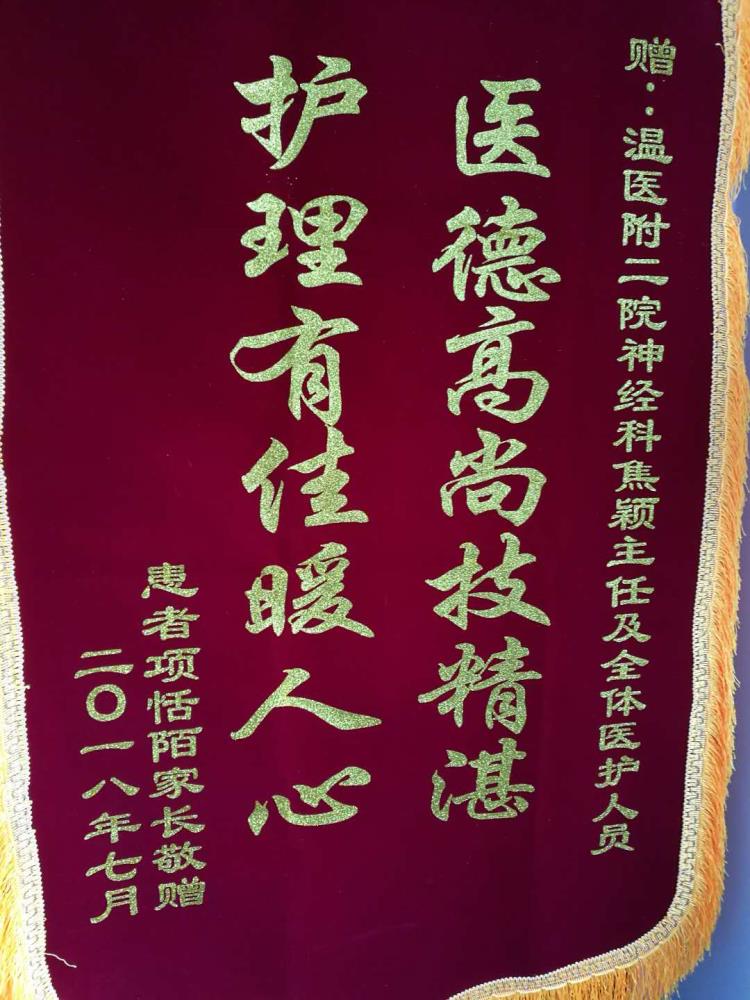 赠：温医附二院神经科焦颖主任及全体医护人员
医德高尚技精湛
护理有佳暖人心
患者项恬陌家长敬赠
二〇一八年七月